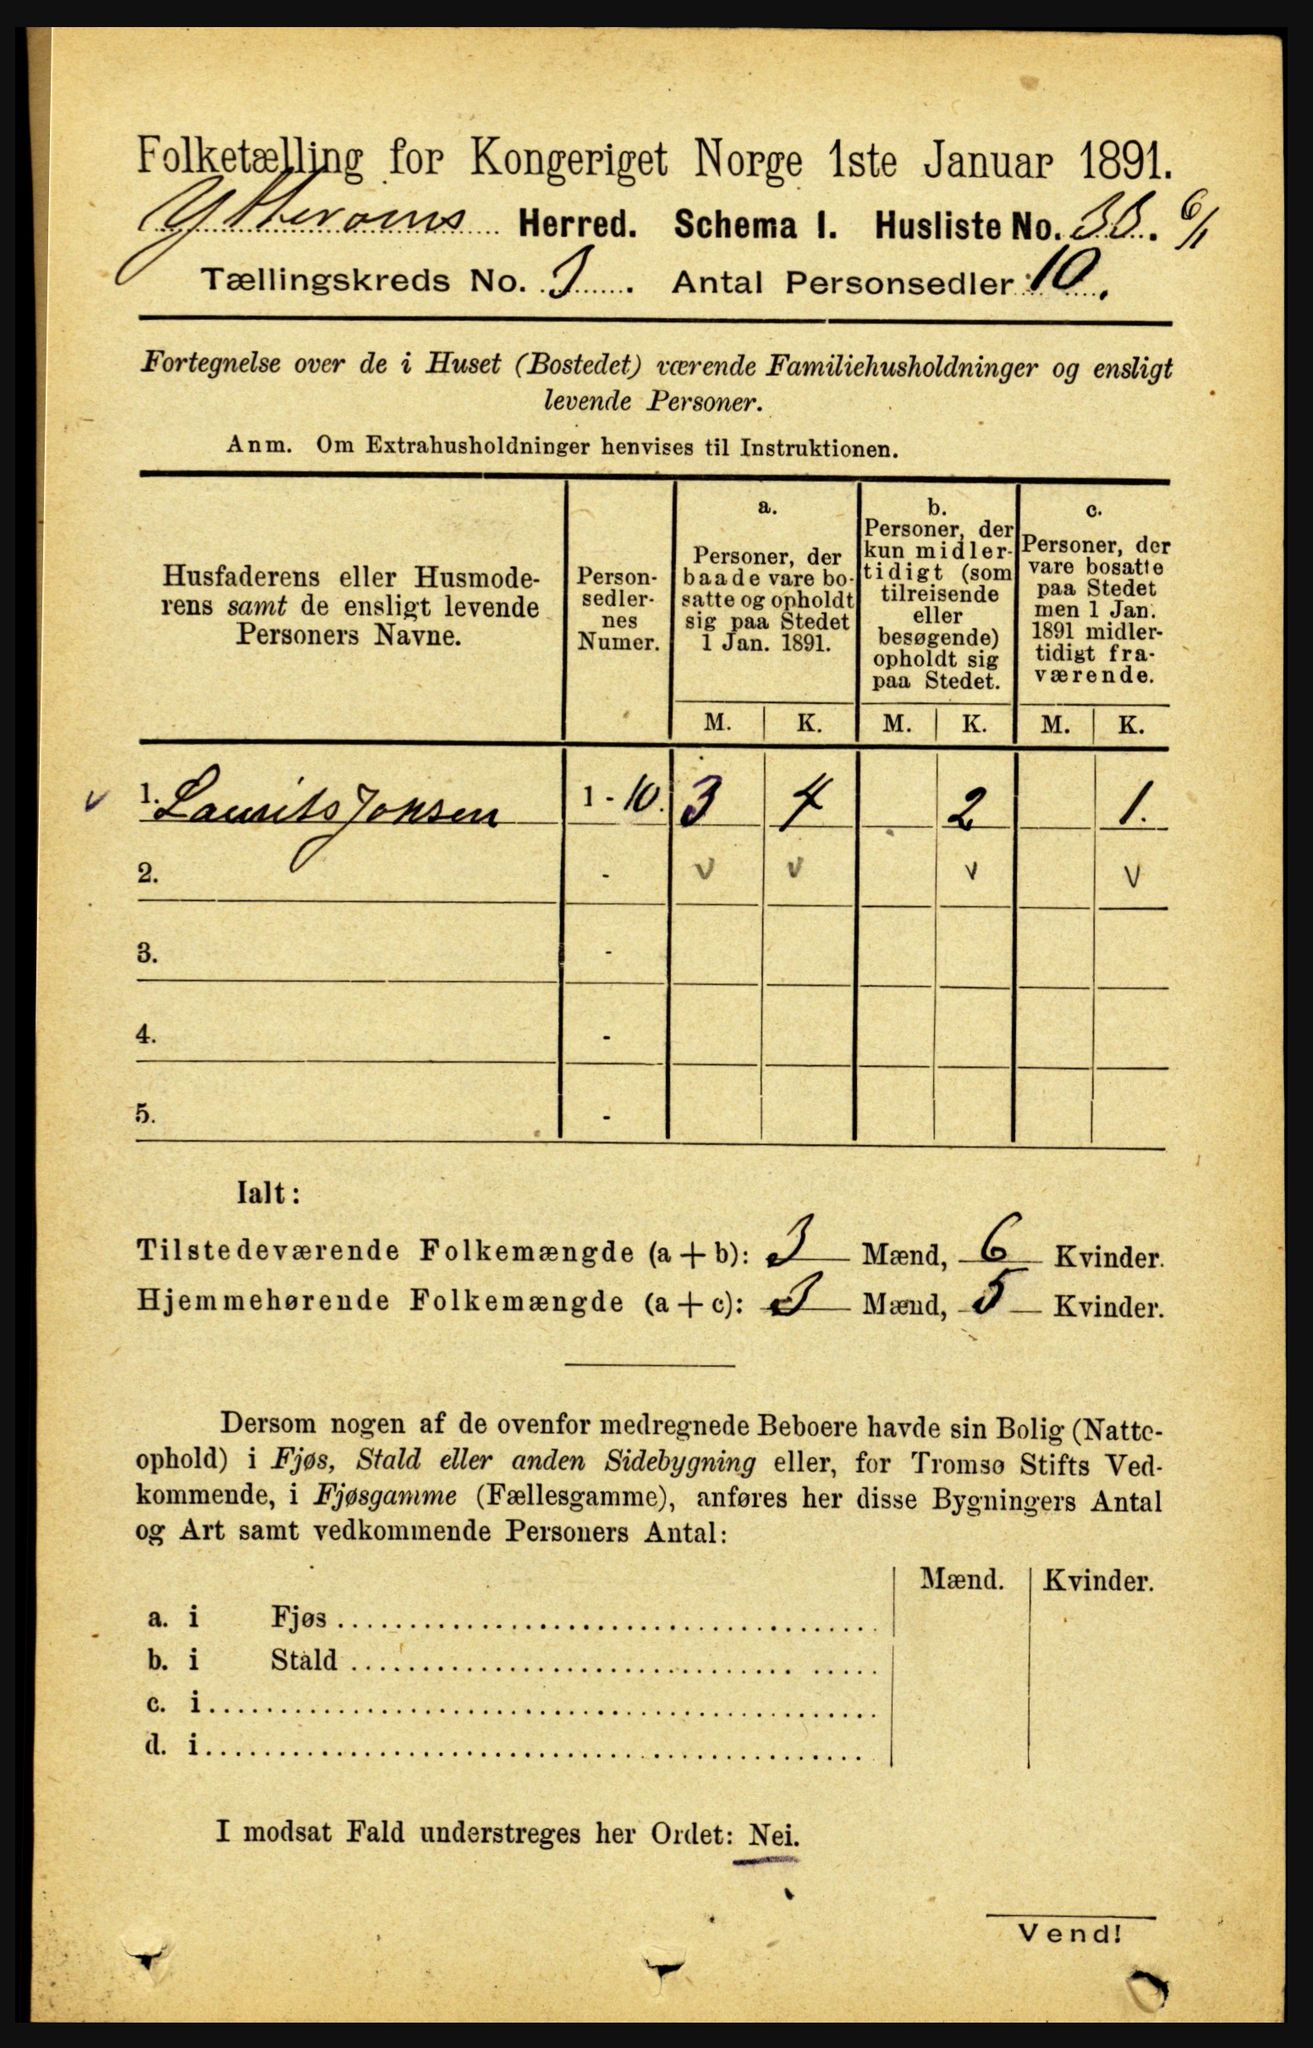 Folketælling for Kongeriget Norge 1ste Januar 1891.
Herred. Schema I. Husliste No. 33. 6/1
Tællingskreds No. 3. Antal Personsedler: 10.
Fortegnelse over de i Huset (Bostedet) værende Familiehusholdninger og ensligt
levende Personer.
Anm. Om Extrahusholdninger henvises til Instruktionen.
Husfaderens eller Husmode-
rens samt de ensligt levende
Personers Navne.
Person-
sedler-
nes
Numer.
a.
Personer, der
baade vare bo-
satte og opholdt
sig paa Stedet
1 Jan. 1891.
b.
Personer, der
kun midler-
tidigt (som
tilreisende
eller
besøgende)
opholdt sig
paa Stedet.
c.
Personer, der
vare bosatte
paa Stedet
men 1 Jan.
1891 midler-
tidigt fra-
værende.
M. K. M. K. M. K.
v 1. Laurits Johsen 1 - 10. 3 4 2 1.
2. - v v v v
3. -
4. -
5. -
Ialt:
Tilstedeværende Folkemængde (a + b): 3 Mænd, 6 Kvinder.
Hjemmehørende Folkemængde (a + c): 3 Mænd, 5 Kvinder.
Dersom nogen af de ovenfor medregnede Beboere havde sin Bolig (Natte-
ophold) i Fjøs, Stald eller anden Sidebygning eller, for Tromsø Stifts Ved-
kommende, i Fjøsgamme (Fællesgamme), anføres her disse Bygningers Antal
og Art samt vedkommende Personers Antal:
Mænd. Kvinder.
a. i Fjøs
b. i Stald
c. i
d. i
I modsat Fald understreges her Ordet: Nei.
Vend!